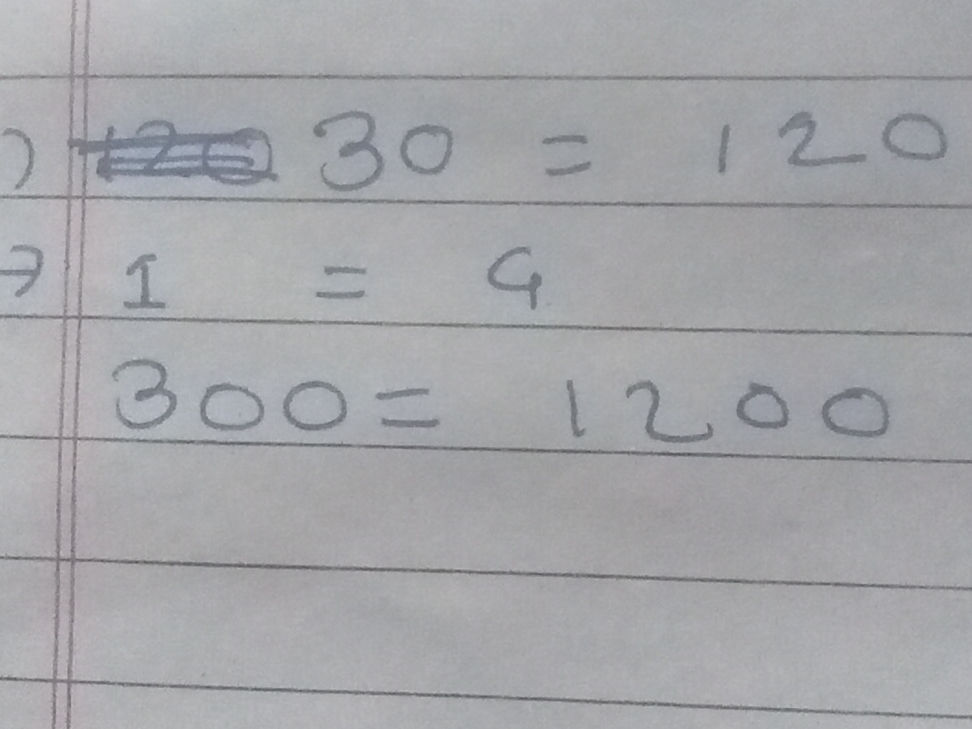 ) 30 = 120
→ 1 = 4
300 = 1200